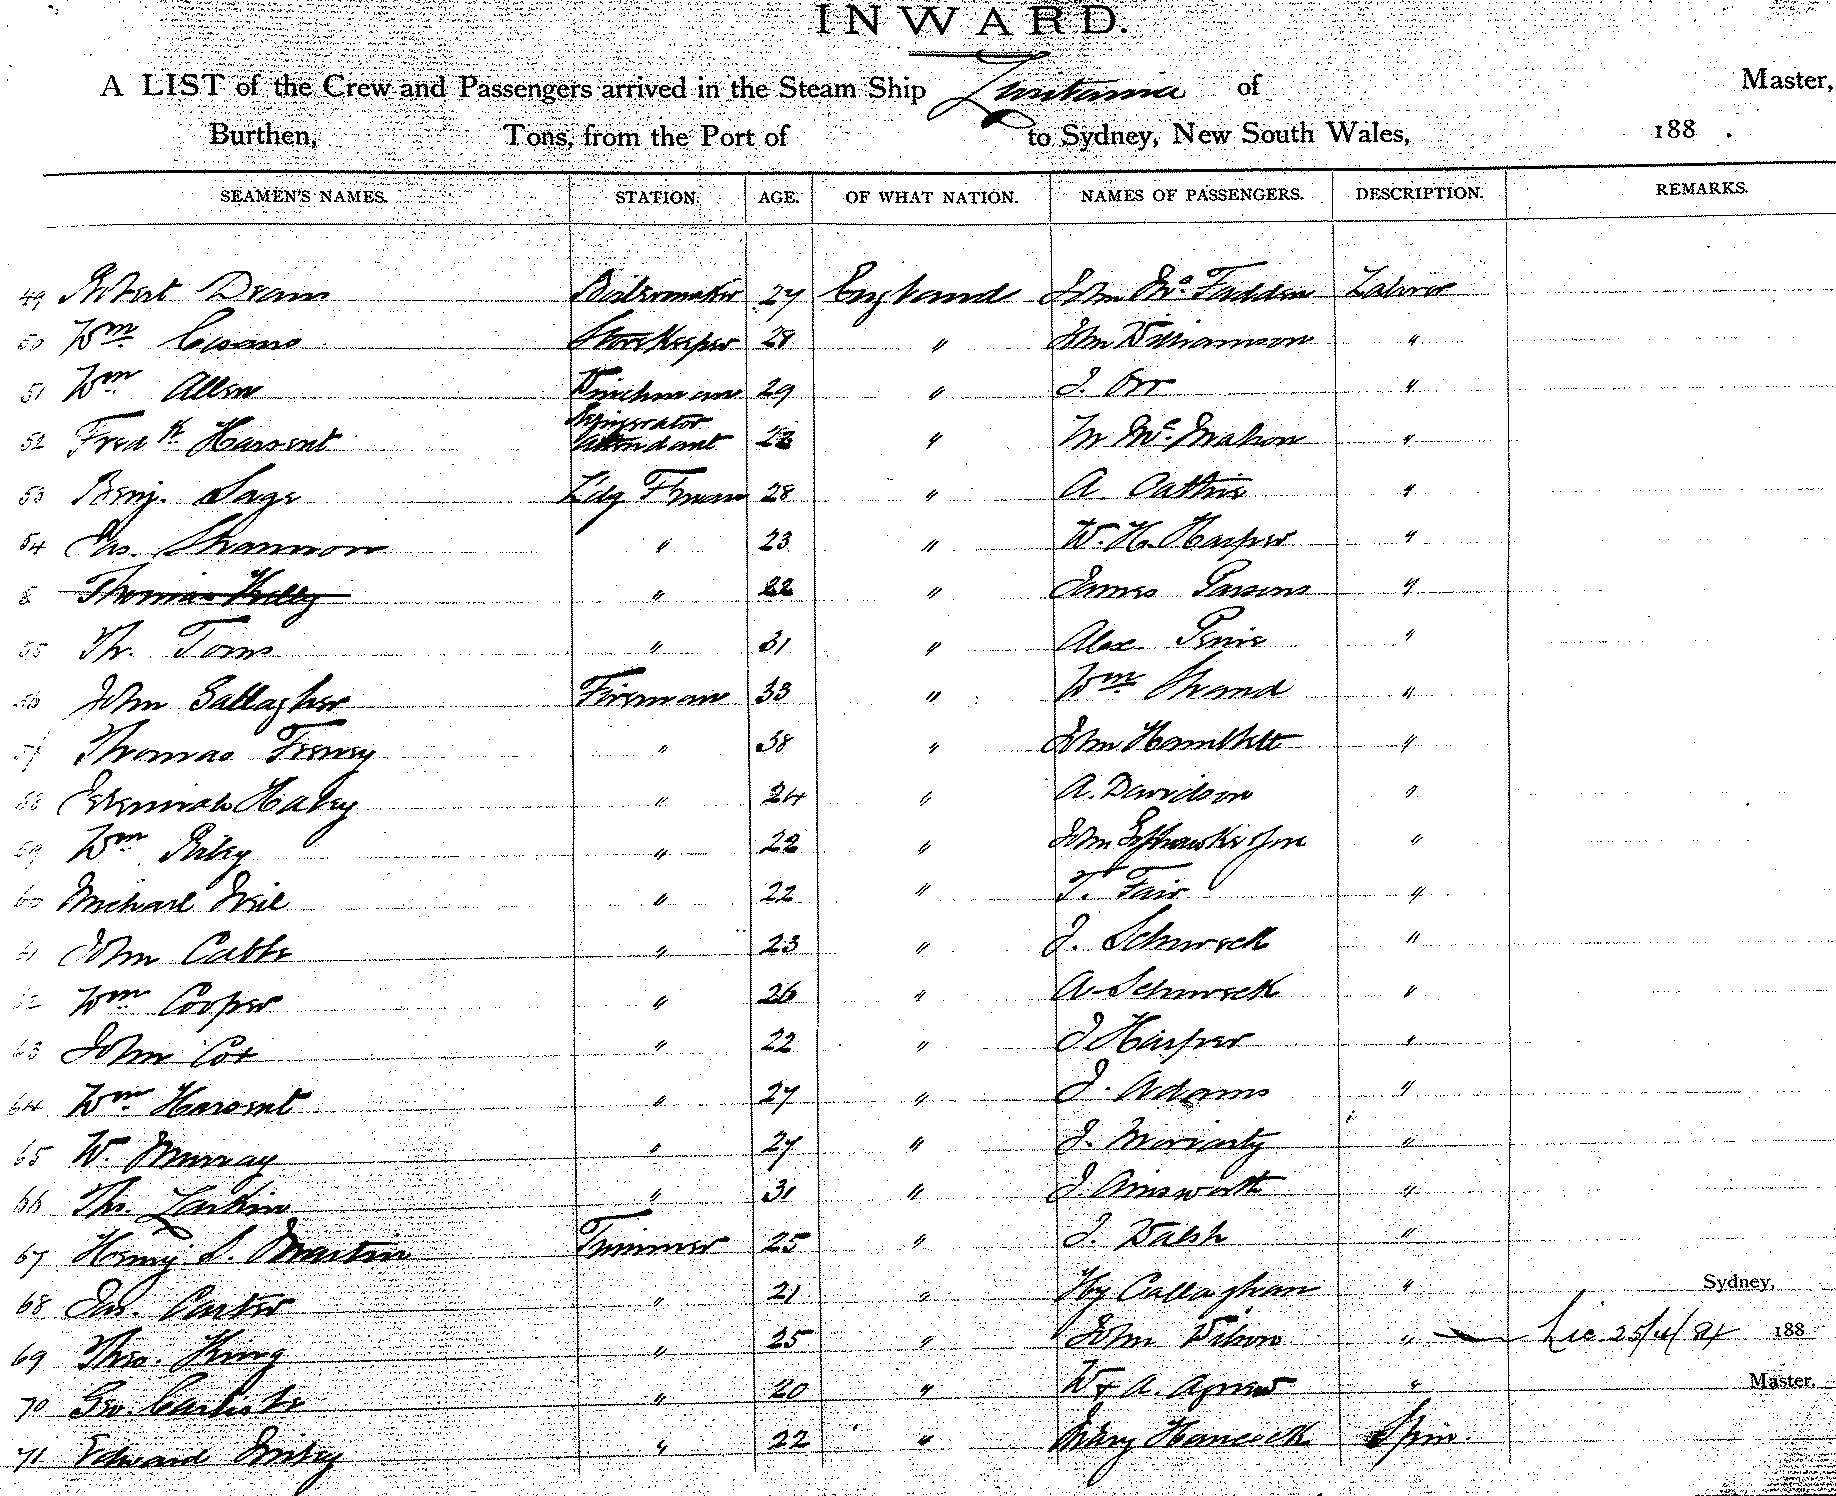 INWARD.
A LIST of the Crew and Passengers arrived in the Steam Ship Lusitania of Master,
Burthen, Tons, from the Port of to Sydney, New South Wales, 188 .
SEAMEN'S NAMES. STATION. AGE. OF WHAT NATION. NAMES OF PASSENGERS. DESCRIPTION. REMARKS.
49 Robert Deans Boilermaker 27 England John McFadden Laborer
50 Wm Evans Storekeeper 28 " John Williamson "
51 Wm Allen Winchman 29 " J. Orr "
52 Fredk Harsent Refrigerator Attendant 23 " M McMahon "
53 Benj. Sage Ldg Fireman 28 " A "
54 Jas. Shannon " 23 " W. H. Harper "
Thomas Kelly " 22 " James Parsons "
55 Th. Toms " 31 " Alex. "
56 John Gallagher Fireman 33 " Wm Strand "
57 Thomas Feeney " 38 " John "
58 Jeremiah Haley " 24 " A. Davidson "
59 Wm Riley " 22 " John "
60 Michael Neil " 22 " T. Fair "
61 John " 23 " J. Schureck "
62 Wm Cooper " 26 " A. Schureck "
63 John Cox " 22 " J Harper "
64 Wm Harsent " 27 " J. Adams "
65 W. Murray " 27 " J. Moriarty "
66 Th. Larkin " 31 " J. Ainsworth "
67 Henry S. Martin Trimmer 25 " J. Walsh "
68 Jas. Carter " 21 " Hy Callaghan " Sydney,
69 Thos. King " 25 " John Wilson " 188
70 Geo. Carlisle " 20 " W & A. Agnew " Master.
71 Edward " 22 " Mary Hancock Spin.